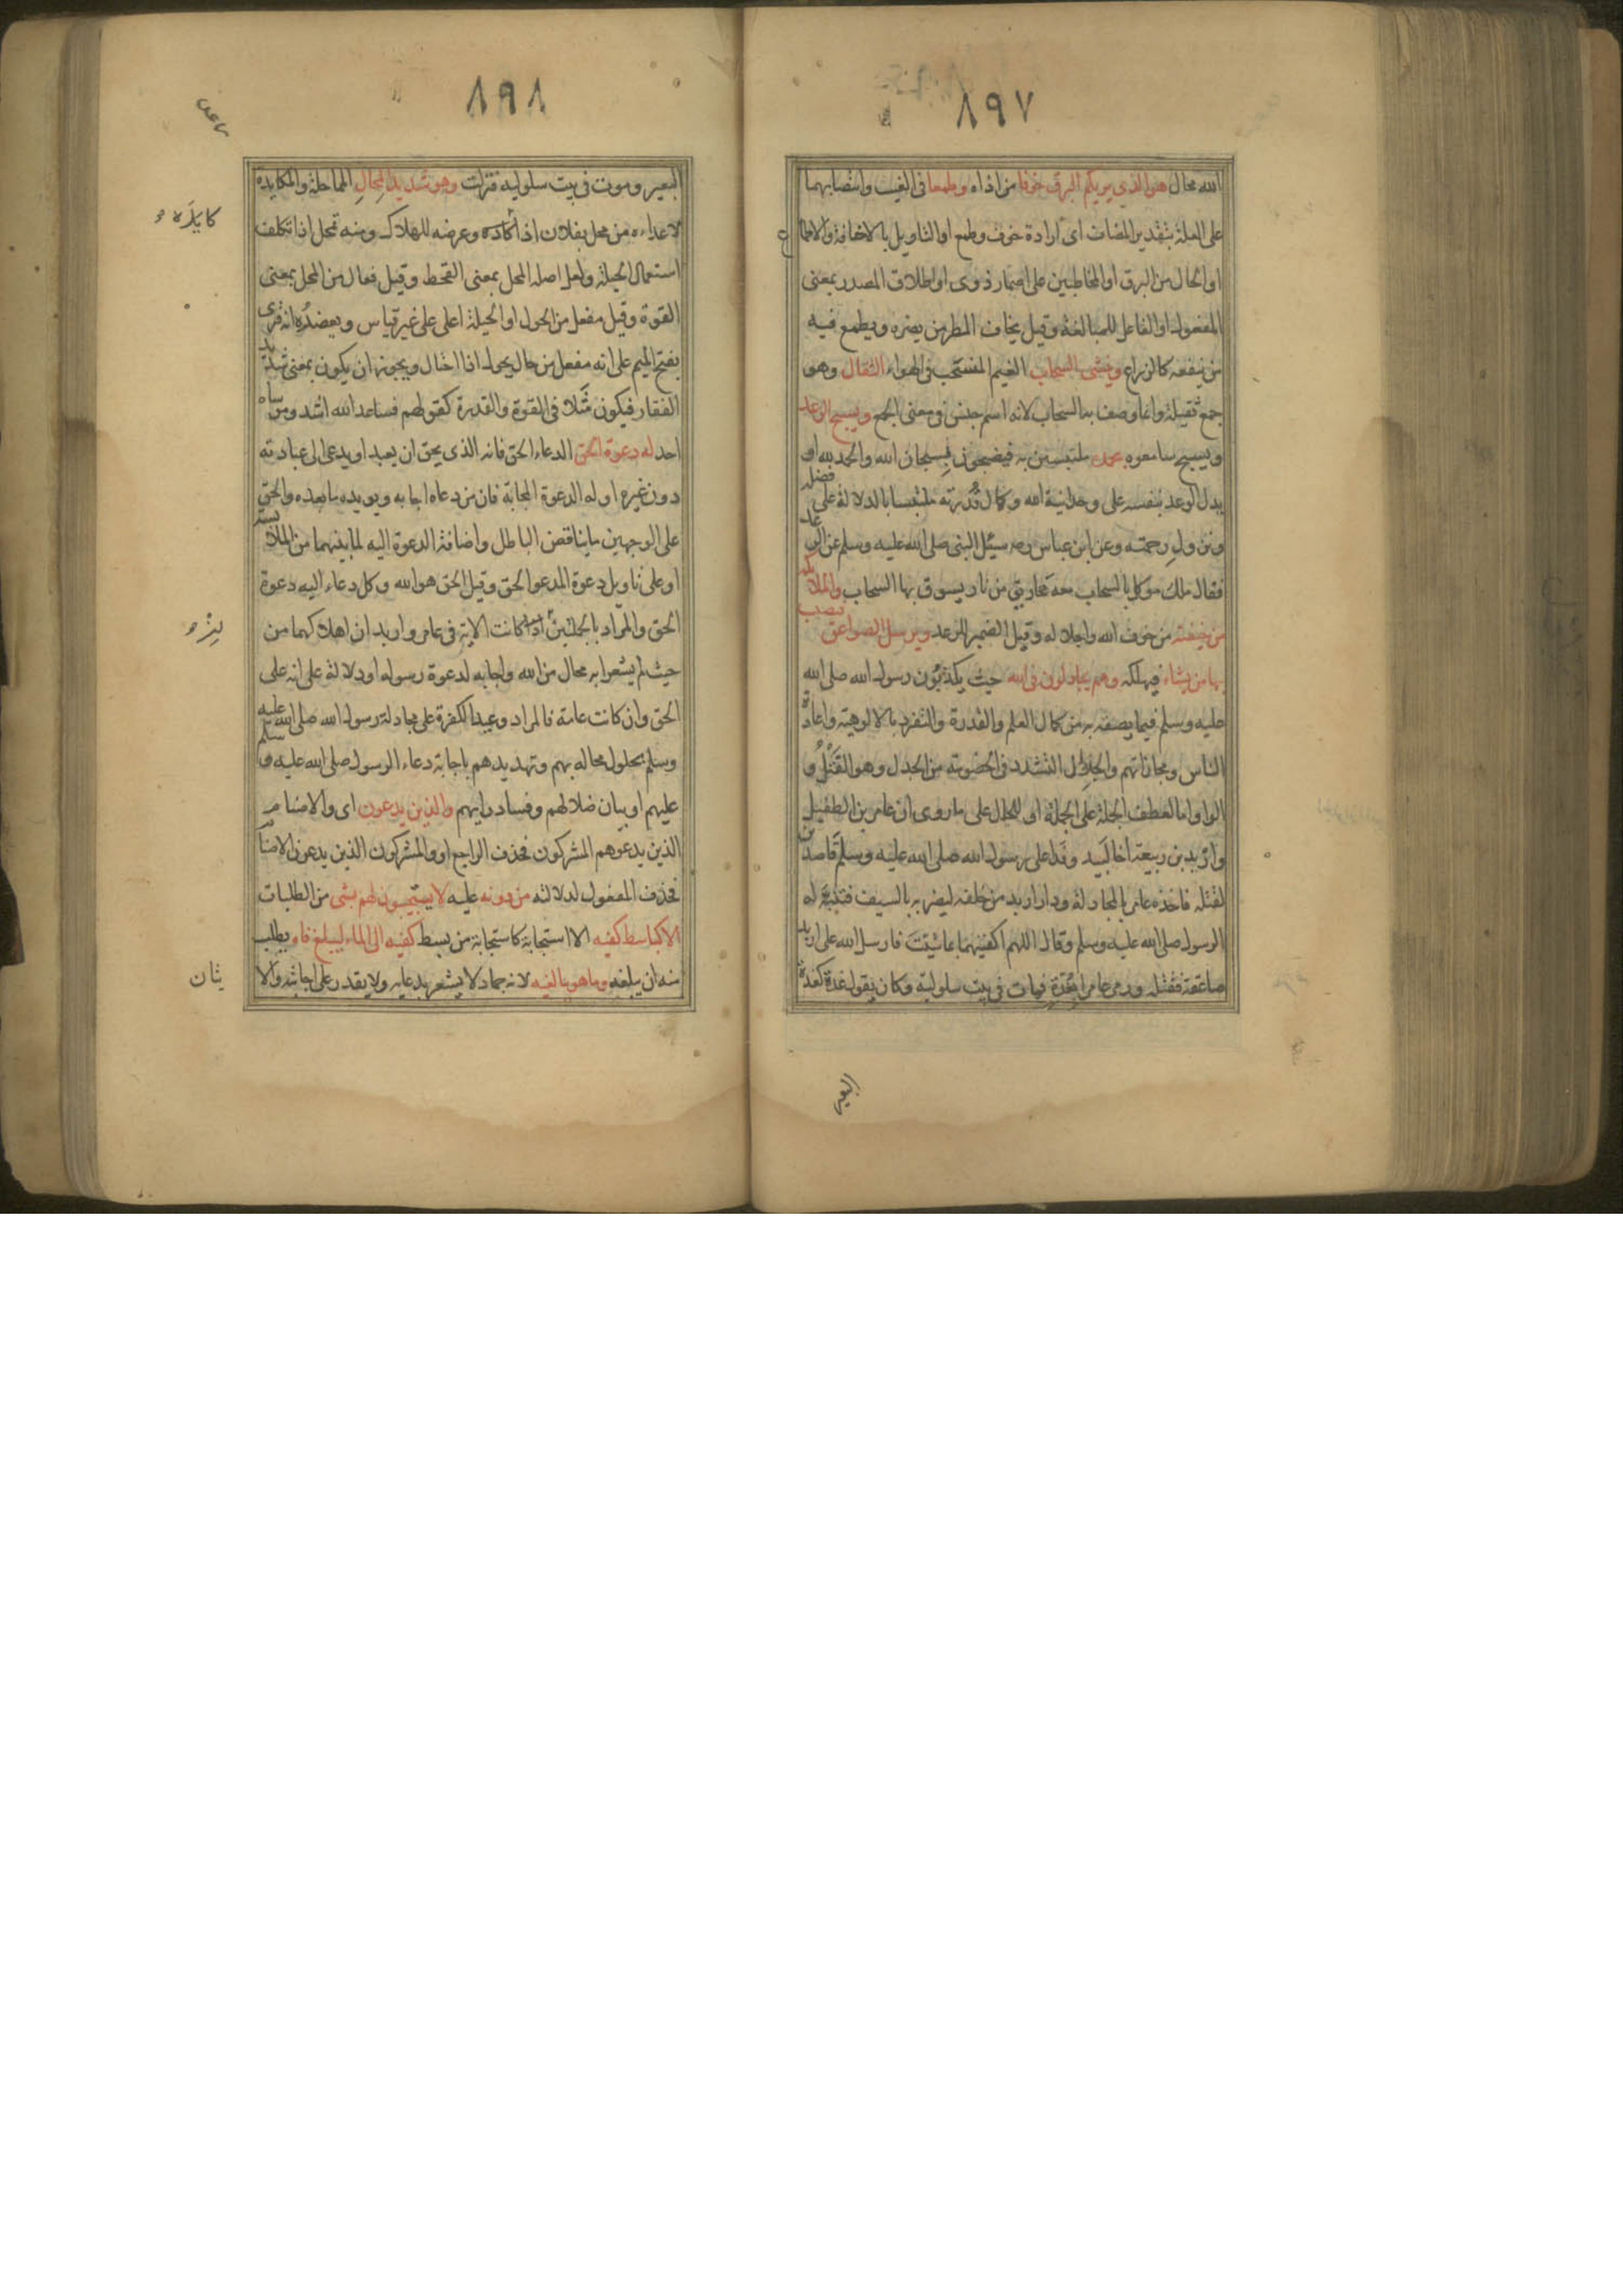 ٨٩٧
الله محال هو الذي يريكم البرق خوفا من اذاه وطمعا في الغيث وانتصابهما
على العلة بتقدير المضاف اى ارادة خوف وطمع او التاويل بالاخافة والاطماع
او الحال من البرق او المخاطبين على اضمار ذوى او اطلاق المصدر بمعنى
المفعول او الفاعل للمبالغة وقيل يخاف المطر من يضره ويطمع فيه
من ينفعه كالزراع وينشى السحاب الغيم المنسحب فى الهواء الثقال وهو
جمع ثقيلة وانما وصف به السحاب لانه اسم جنس فى معنى الجمع ويسبح الرعد
ويسبح سامعوه بحمده ملتبسين به فيضجون بسبحان الله والحمد لله او
يدل الرعد بنفسه على وحدانية الله وكمال قُدرته ملتبسا بالدلالة على فضله
ونزول رحمته وعن ابن عباس رضـ سئل النبى صلى الله عليه وسلم عن الرعد
فقال ملك موكل بالسحاب معه مخاريق من نار يسوق بها السحاب والملائكة
من خيفته من خوف الله واجلاله وقيل الضمير للرعد ويرسل الصواعق فيصيب
بها من يشاء فيهلكه وهم يجادلون فى الله حيث يكذبون رسول الله صلى الله
عليه وسلم فيما يصفه به من كمال العلم والقدرة والتفرد بالالوهية واعادة
الناس ومجازاتهم والجدال التشدد فى الخصومة من الجدل وهو الفتل و
الواو اما لعطف الجملة على الجملة او للحال على ما روى ان عامر بن الطفيل
واربد بن ربيعة اخا لبيد وفدا على رسول الله صلى الله عليه وسلم قاصدين
لقتله فاخذه عامر بالمجادلة ودار اربد من خلفه ليضربه بالسيف فتنبه له
الرسول صلى الله عليه وسلم وقال اللهم اكفنيهما بما شئت فارسل الله على اربد
صاعقة فقتلته ورمى عامرا بغدة فمات فى بيت سلولية وكان يقول غدة كغدة
البعير
٨٩٨
البعير وموت فى بيت سلولية فنزلت وهو شديد المِحالِ المماحلة والمكايدة
لاعداءه من محل بفلان اذا كاده وعرضه للهلاك ومنه تمحل اذا تكلف
استعمال الحيلة ولعل اصله المحل بمعنى القحط وقيل فعال من المحل بمعنى
القوة وقيل مفعل من الحول او الحيلة اعل على غير قياس ويعضدُه انه قرى
بفتح الميم على انه مفعل من حال يحول اذا احتال ويجوز ان يكون بمعنى شديد
الفقار فيكون مثلا فى القوة والقدرة كقولهم فساعد الله اشد وموساه
احد له دعوة الحق الدعاء الحق فانه الذى يحق ان يعبد او يدعى الى عبادته
دون غيره او له الدعوة المجابة فان من دعاه اجابه ويويده ما بعده والحق
على الوجهين ما يناقض الباطل واضافة الدعوة اليه لما بينهما من الملابسة
او على تاويل دعوة المدعو الحق وقيل الحق هو الله وكل دعاء اليه دعوة
الحق والمراد بالجملتين ان كانت الاية فى عامر واربد ان اهلاكهما من
حيث لم يشعرا به محال من الله واجابة لدعوة رسوله او دلالة على انه على
الحق وان كانت عامة فالمراد وعيد الكفرة على مجادلة رسول الله صلى الله عليه
وسلم بحلول محاله بهم وتهديدهم باجابة دعاء الرسول صلى الله عليه وسلم
عليهم او بيان ضلالهم وفساد رايهم والذين يدعون اى والاصنام
الذين يدعوهم المشركون فحذف الراجع او والمشركون الذين يدعون الاصنام
فحذف المفعول لدلالة من دونه عليه لا يستجيبون لهم بشى من الطلبات
الا كباسط كفيه الا استجابة كاستجابة من بسط كفيه الى الماء ليبلغ فاه يطلب
منه ان يبلغه وما هو ببالغه لانه جماد لا يشعر بدعايه ولا يقدر على اجابته والا